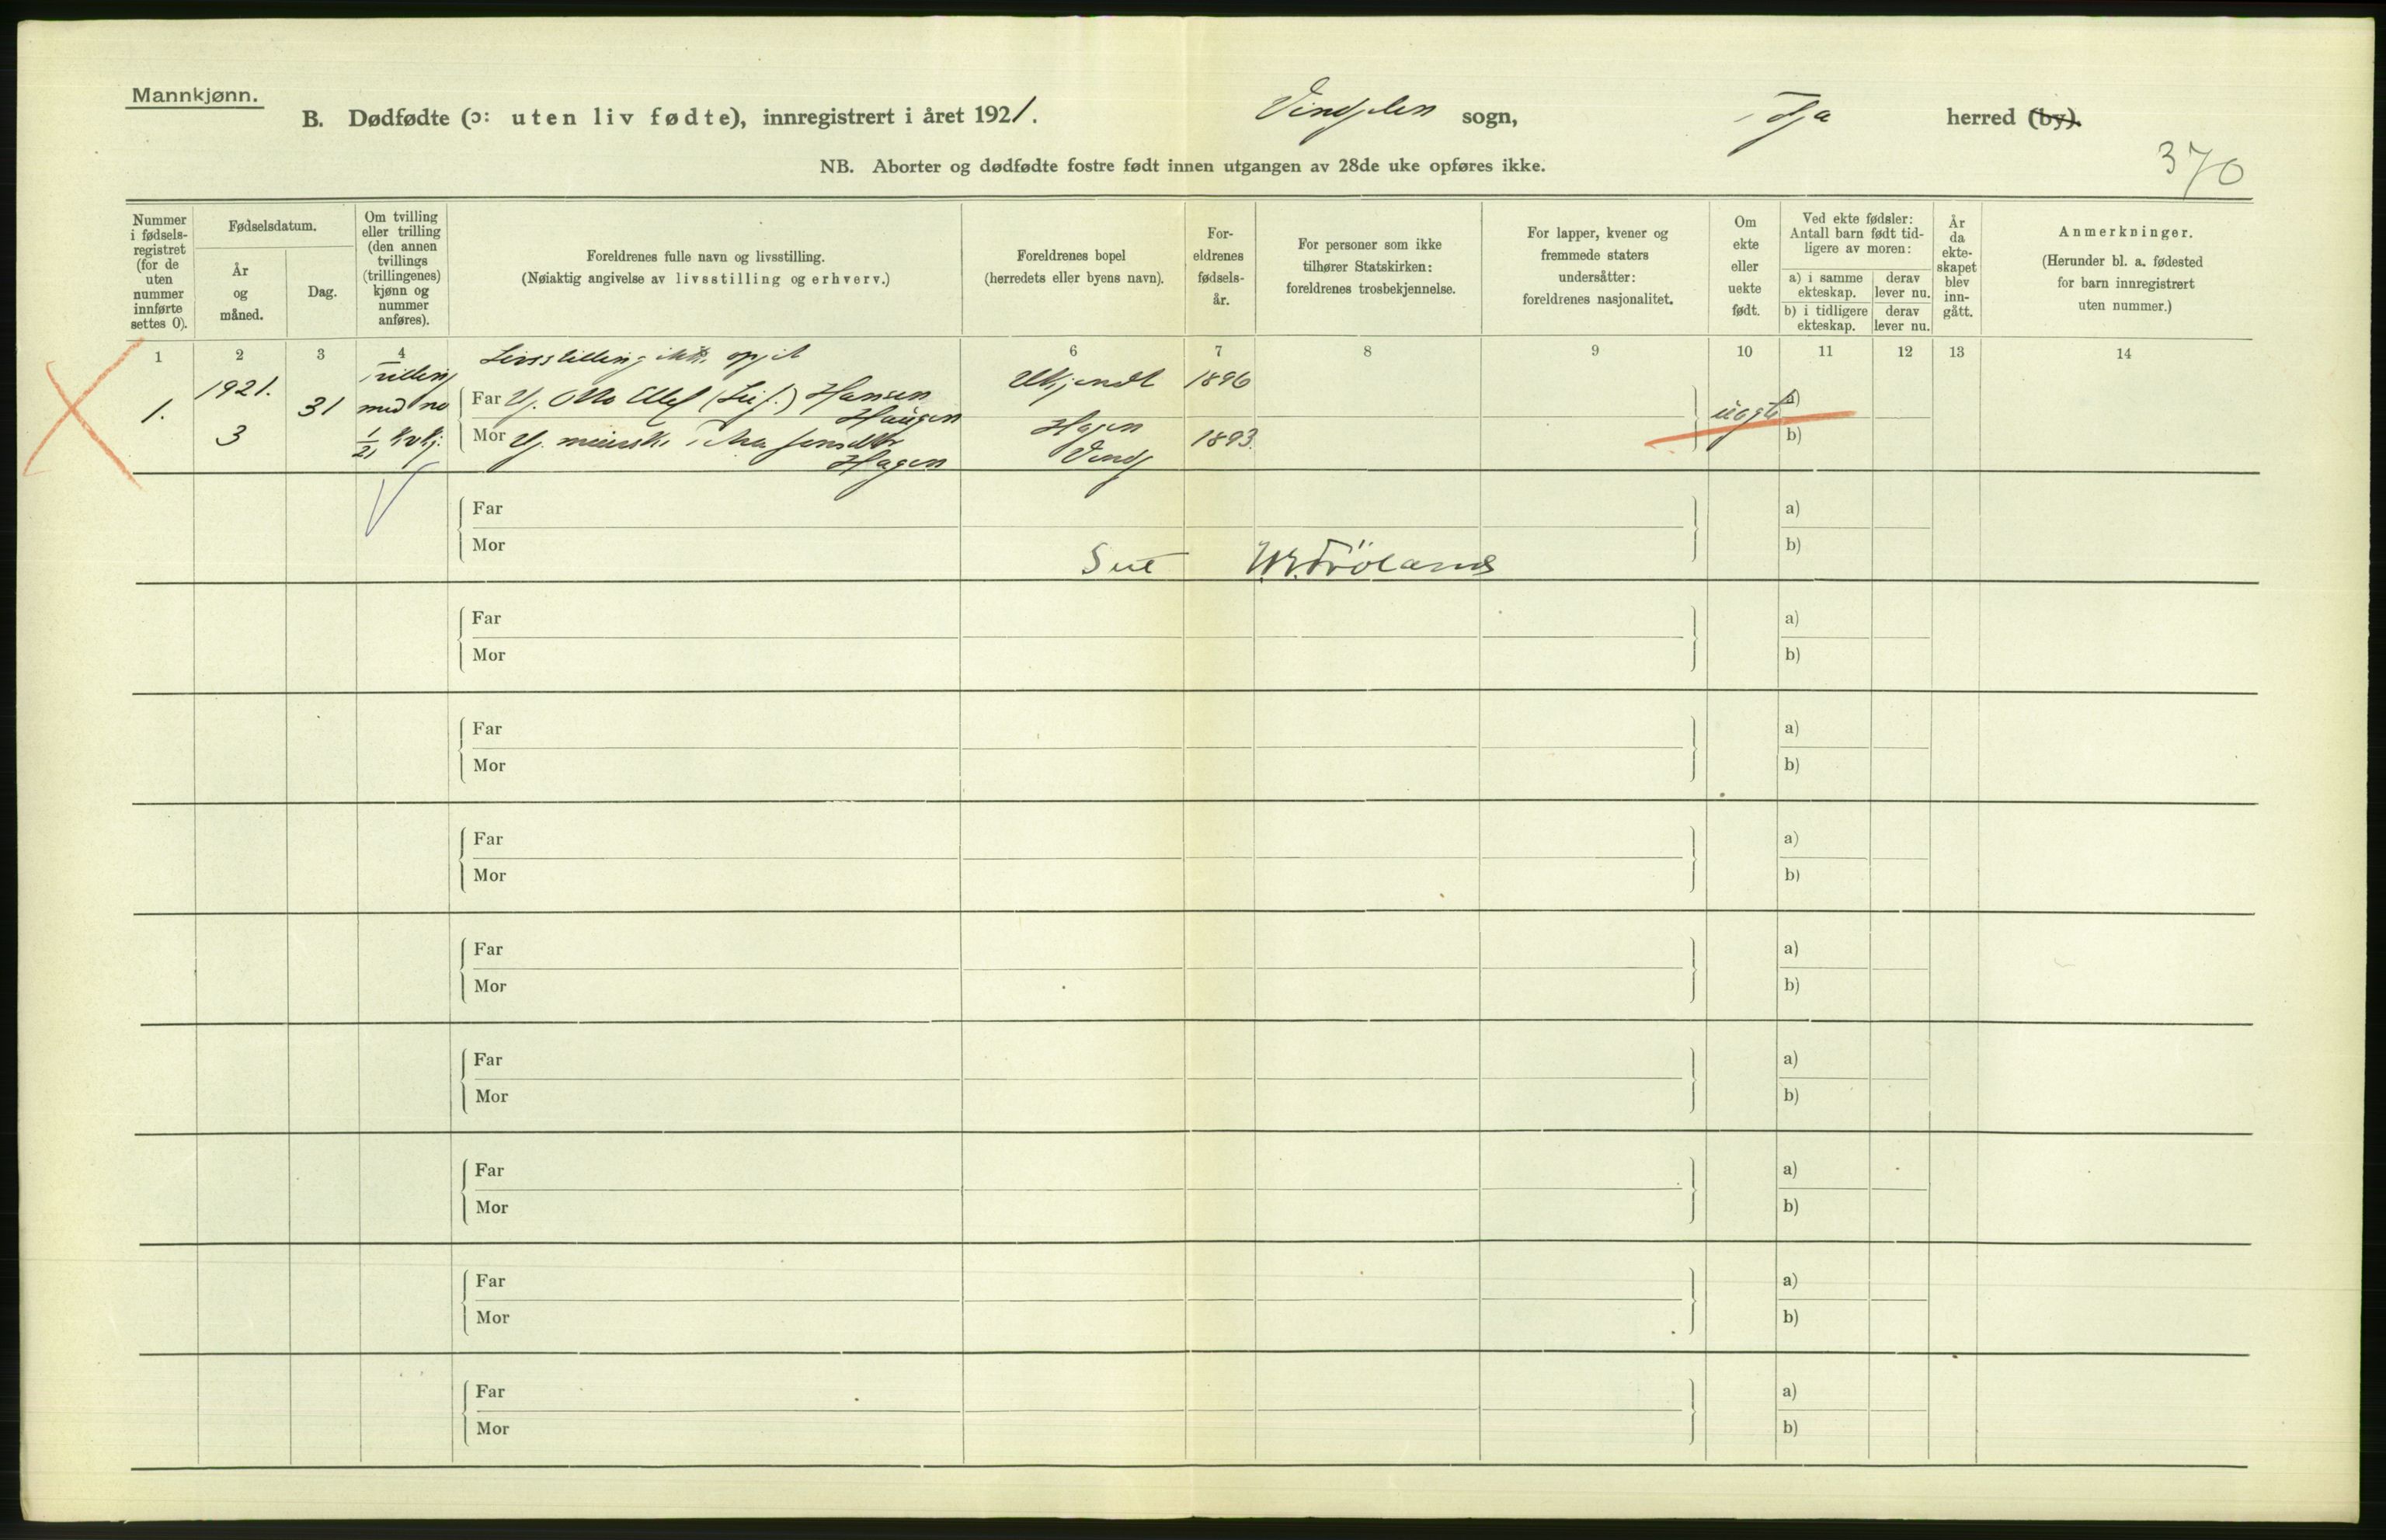 Mannkjønn.
B. Dødfødte (ɔ: uten liv fødte), innregistrert i året 1921. Vingelen sogn, Tolga herred (by).
NB. Aborter og dødfødte fostre født innen utgangen av 28de uke opføres ikke.
370
Nummer i fødsels-registret (for de uten nummer innførte settes 0).
Fødselsdatum.
År og måned.
Dag.
Om tvilling eller trilling (den annen tvillings (trillingenes) kjønn og nummer anføres).
Foreldrenes fulle navn og livsstilling.
(Nøiaktig angivelse av livsstilling og erhverv.)
Foreldrenes bopel
(herredets eller byens navn).
For-eldrenes fødsels-år.
For personer som ikke
tilhører Statskirken:
foreldrenes trosbekjennelse.
For lapper, kvener og
fremmede staters
undersåtter:
foreldrenes nasjonalitet.
Om ekte eller uekte født.
Ved ekte fødsler:
Antall barn født tid-
ligere av moren:
a) i samme ekteskap. derav lever nu.
b) i tidligere ekteskap. derav lever nu.
År da ekte-skapet blev inn-gått.
Anmerkninger.
(Herunder bl. a. fødested
for barn innregistrert
uten nummer.)
1 2 3 4 6 7 8 9 10 11 12 13 14
Livsstilling ikke opgit
1. 1921. 3 31
med no 1/21 kvkj.
Far Hansen Haugen Ukjendt 1896
Mor Hagen Hagen Ving 1893.
uægte a)
b)
Far a)
Mor b)
Far a)
Mor b)
Far a)
Mor b)
Far a)
Mor b)
Far a)
Mor b)
Far a)
Mor b)
Far a)
Mor b)
Far a)
Mor b)
Far a)
Mor b)